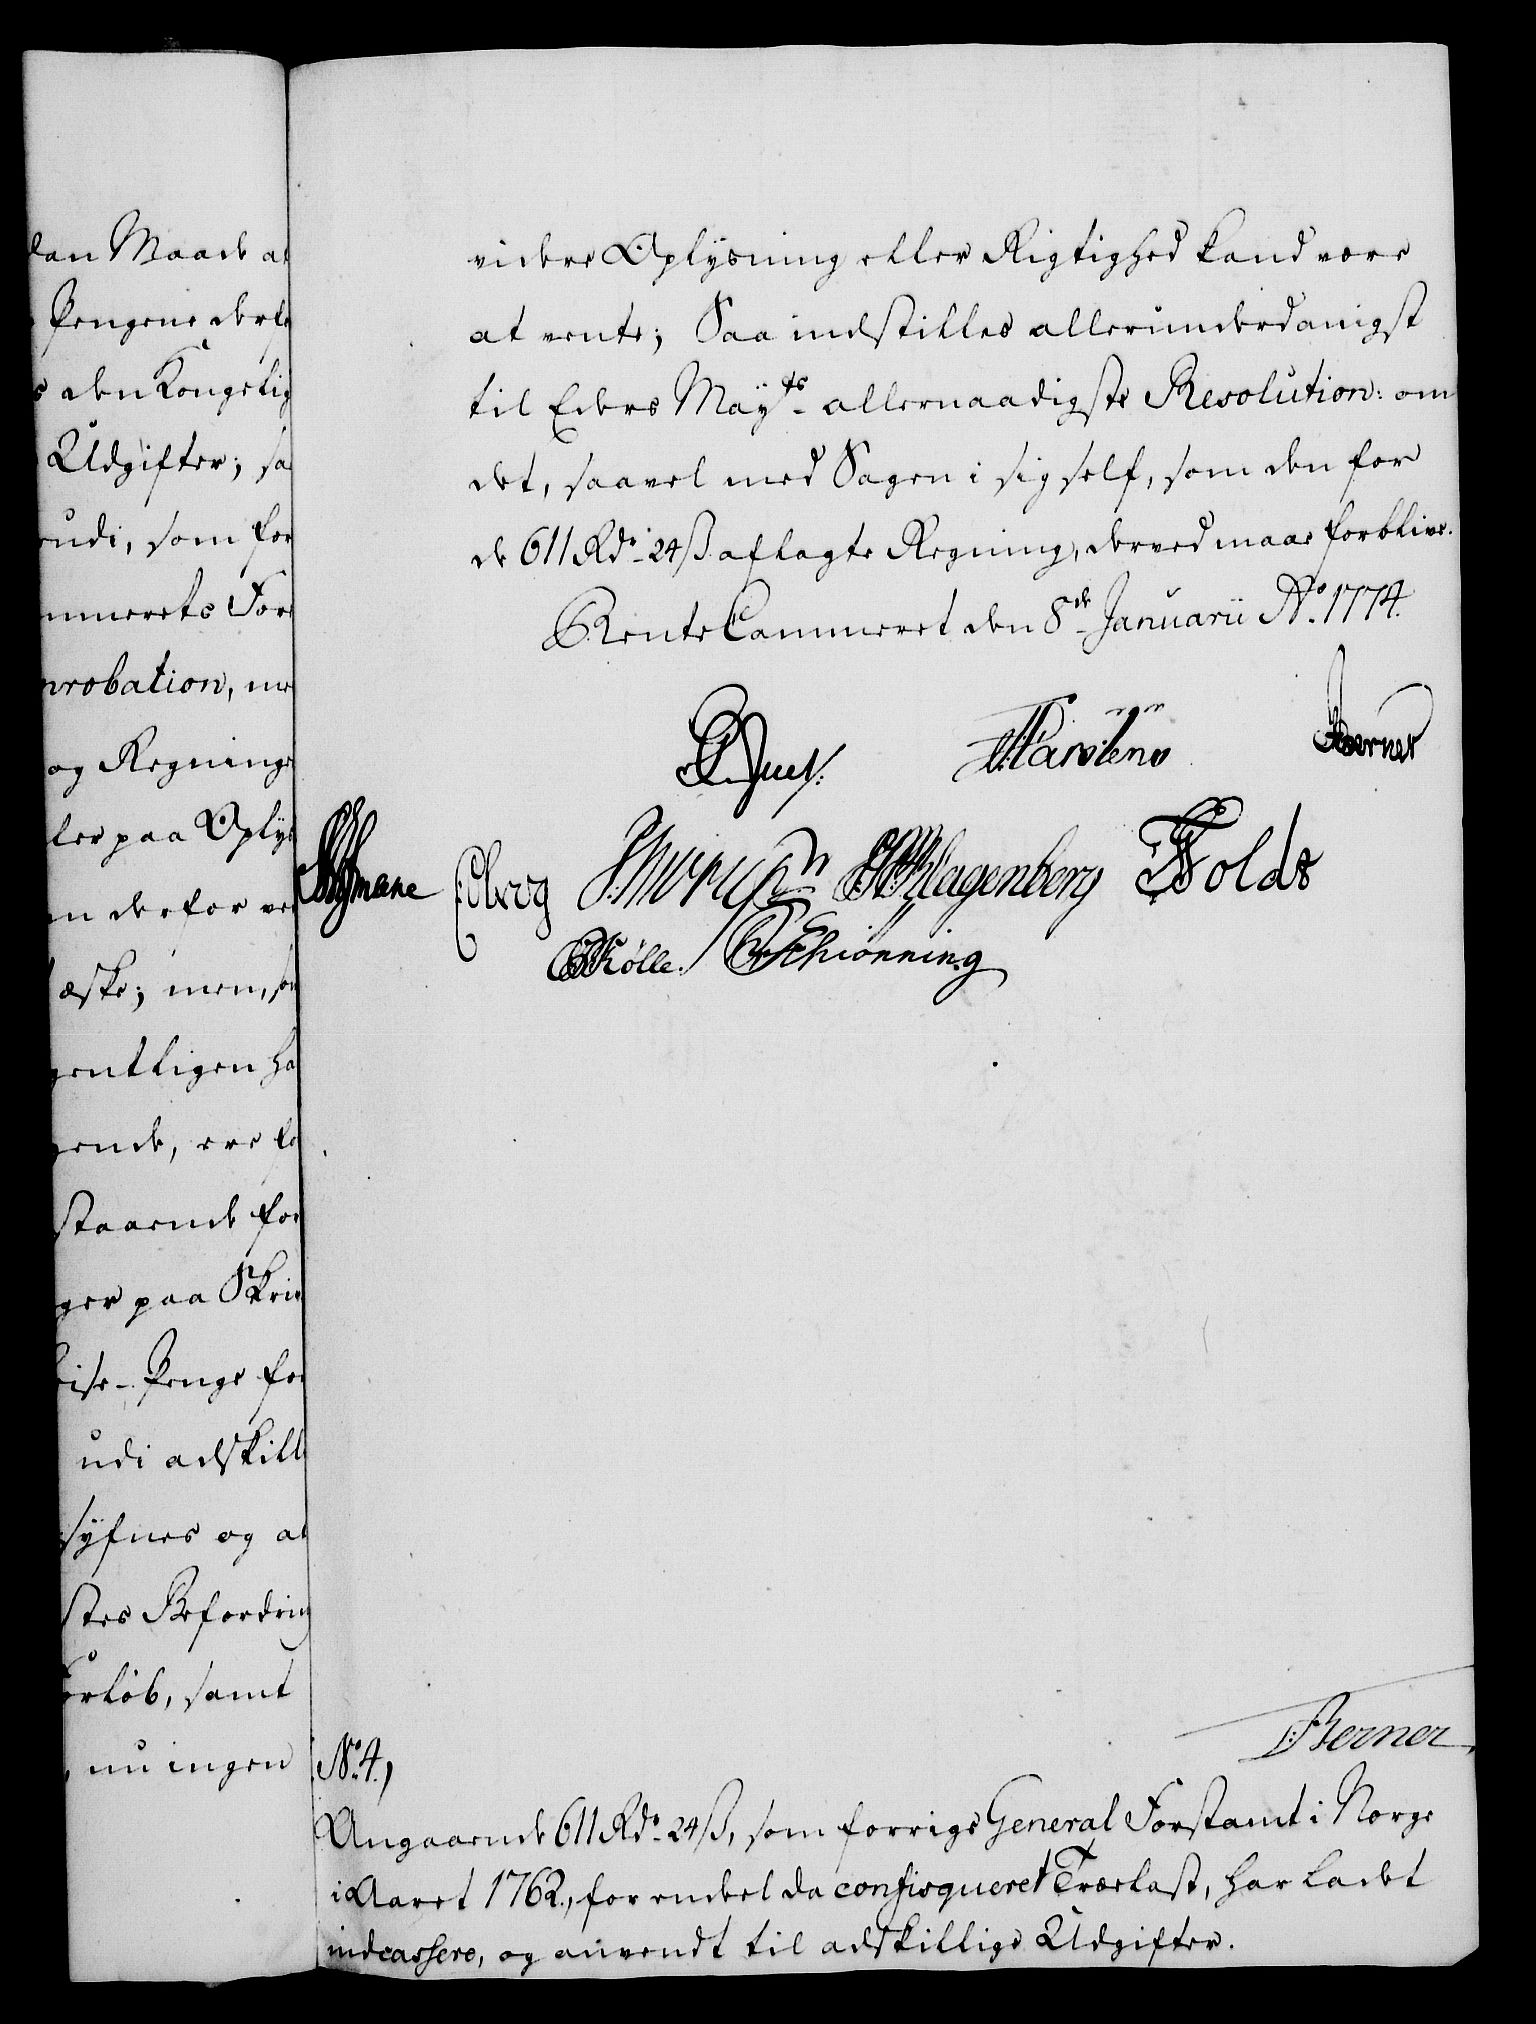 dan Maade at
Pengene derfo
den Kongelig
Udgifter; sa
udi, som for
mmerets For
probation, me
og Regninge
ler paa Oplys
en derfor ve
æske; men, so
gentligen ha
gende, ere fo
staaende for
ger paa Skri
ise-Penge for
udi adskill
syfnes og at
stes Befordring
orløb, samt
nu ingen
videre Oplysning eller Rigtighed kand være
at vente; Saa indstilles allerunderdanigst
til Eders Mayts. allernaadigste Resolution: om
det, saavel med Sagen i sig self, som den for
de 611 Rdr. 24 ß aflagte Regning, derved maae forblive.
RenteCammeret den 8de Januarii Ao. 1774.
Juel. Carstens Berner
Klagenberg Holdt
Kølle. Schiønning
Berner
No. 4.,
Angaaende 611 Rdr. 24 ß, som forrige General Forstamt i Norge
i Aaret 1762., for endeel da confisqueret Trælast, har ladet
indcassere, og anvendt til adskillige Udgifter.